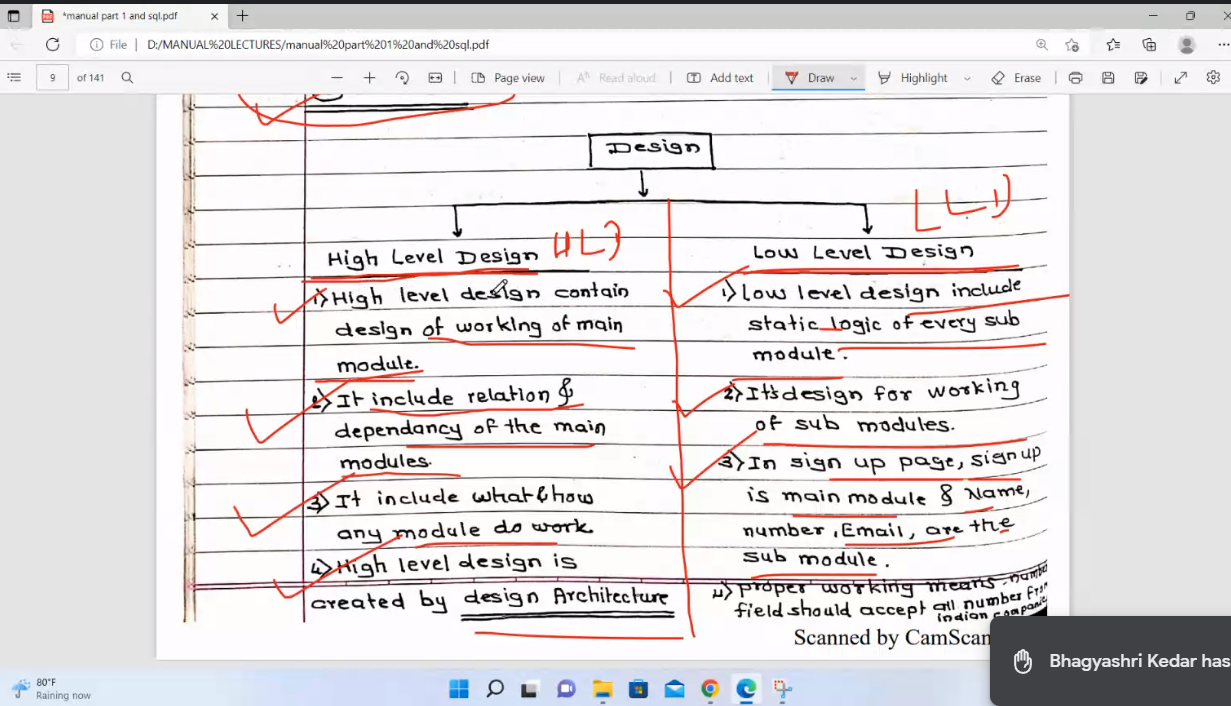 *manual part 1 and sql.pdf
File D:/MANUAL%20LECTURES/manual%20part%201%20and%20sql.pdf
9 of 141 Page view Read aloud Add text Draw Highlight Erase
Design
High Level Design HLD
1) High level design contain
design of working of main
module.
2) It include relation &
dependancy of the main
modules.
3) It include what & how
any module do work.
4) High level design is
created by design Architecture
Low Level Design LLD
1) Low level design include
static logic of every sub
module.
2) It's design for working
of sub modules.
3) In sign up page, sign up
is main module & Name,
number, Email, are the
sub module.
4) proper working means number
field should accept all number from
indian companie
Scanned by CamScan
Bhagyashri Kedar has
80°F
Raining now